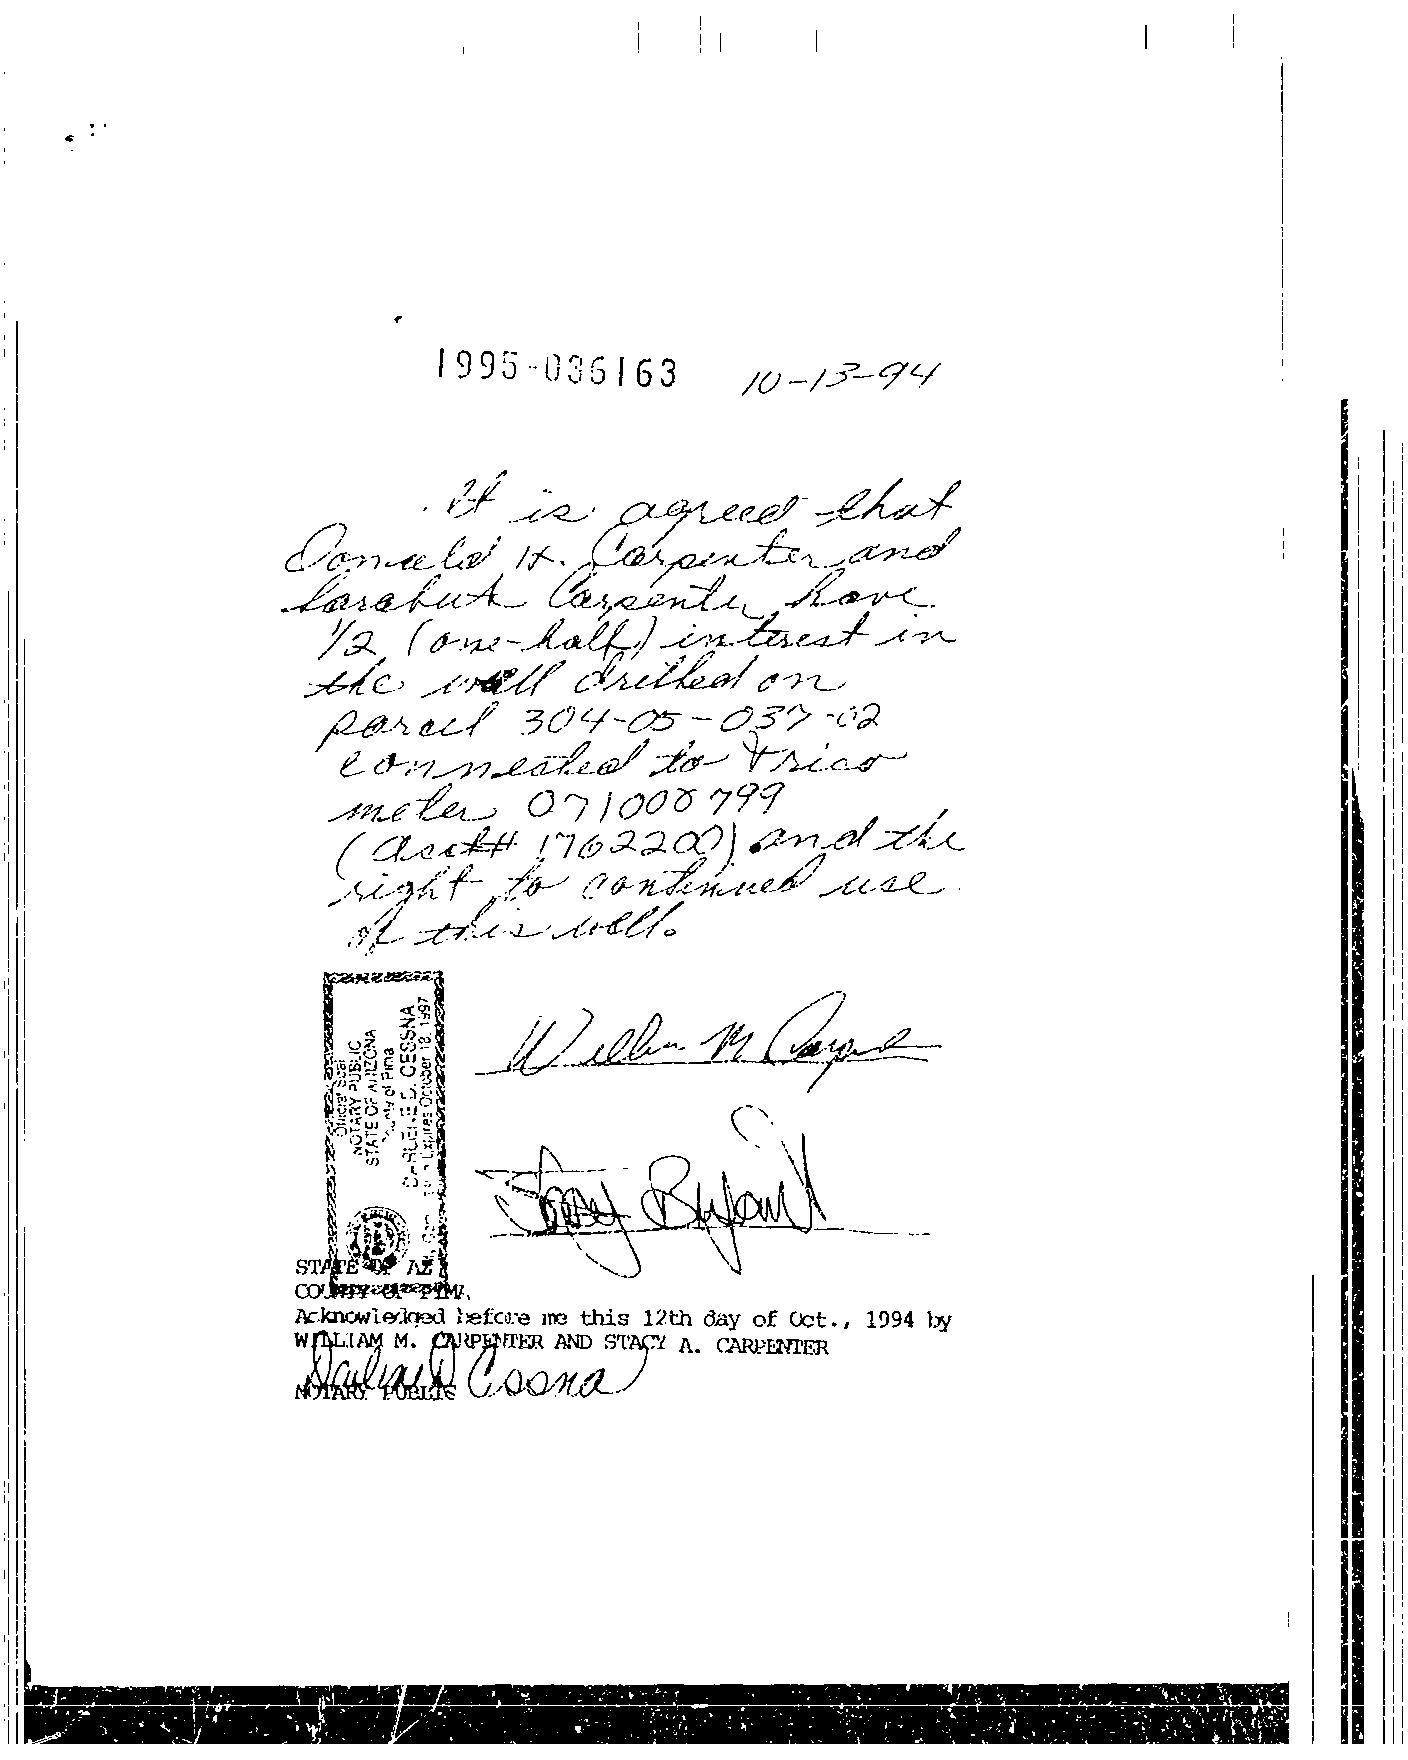 1995-036163 10-13-94
It is agreed that
Donald H. Carpenter and
Sarabut Carpenter have
1/2 (one-half) interest in
the well drilled on
parcel 304-05-037-02
connected to Trico
meter 071000799
(Acct# 1762200) and the
right to continued use
of this well.
Official Seal
NOTARY PUBLIC
STATE OF ARIZONA
County of Pima
DARLENE D. CESSNA
Expires October 18, 1997
William M Carpenter
Stacy Bryant
STATE OF AZ
COUNTY OF PIMA
Acknowledged before me this 12th day of Oct., 1994 by
WILLIAM M. CARPENTER AND STACY A. CARPENTER
Darlene D Cessna
NOTARY PUBLIC